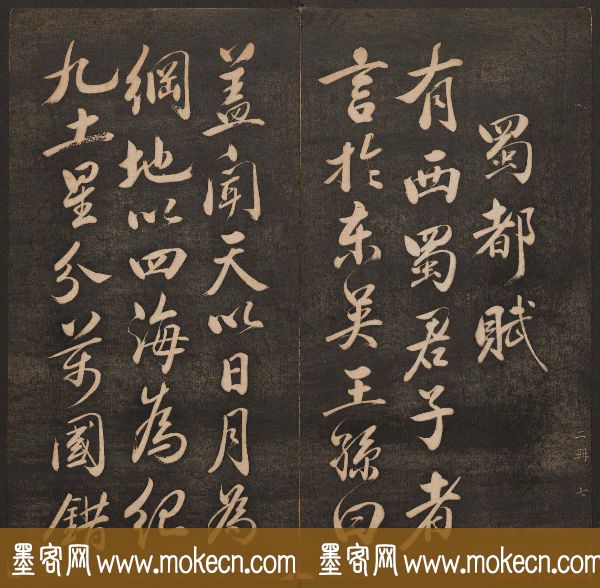 蜀都賦
有西蜀君子者
言於东吴王孫曰
蓋聞天以日月為
綱地以四海為紀
九土星分萬國錯
二冊 七
墨客网 www.mokecn.com 墨客网 www.mokecn.com